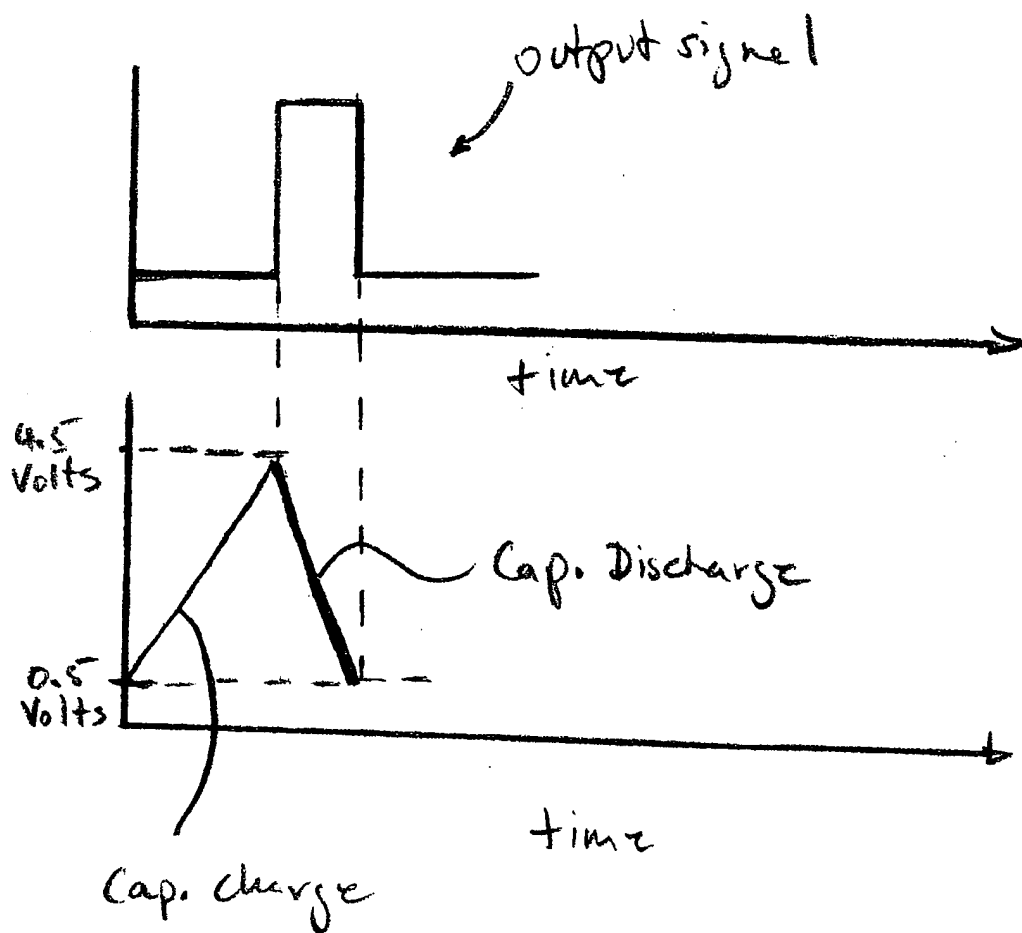 output signal
time
4.5
Volts
Cap. Discharge
0.5
Volts
time
Cap. charge